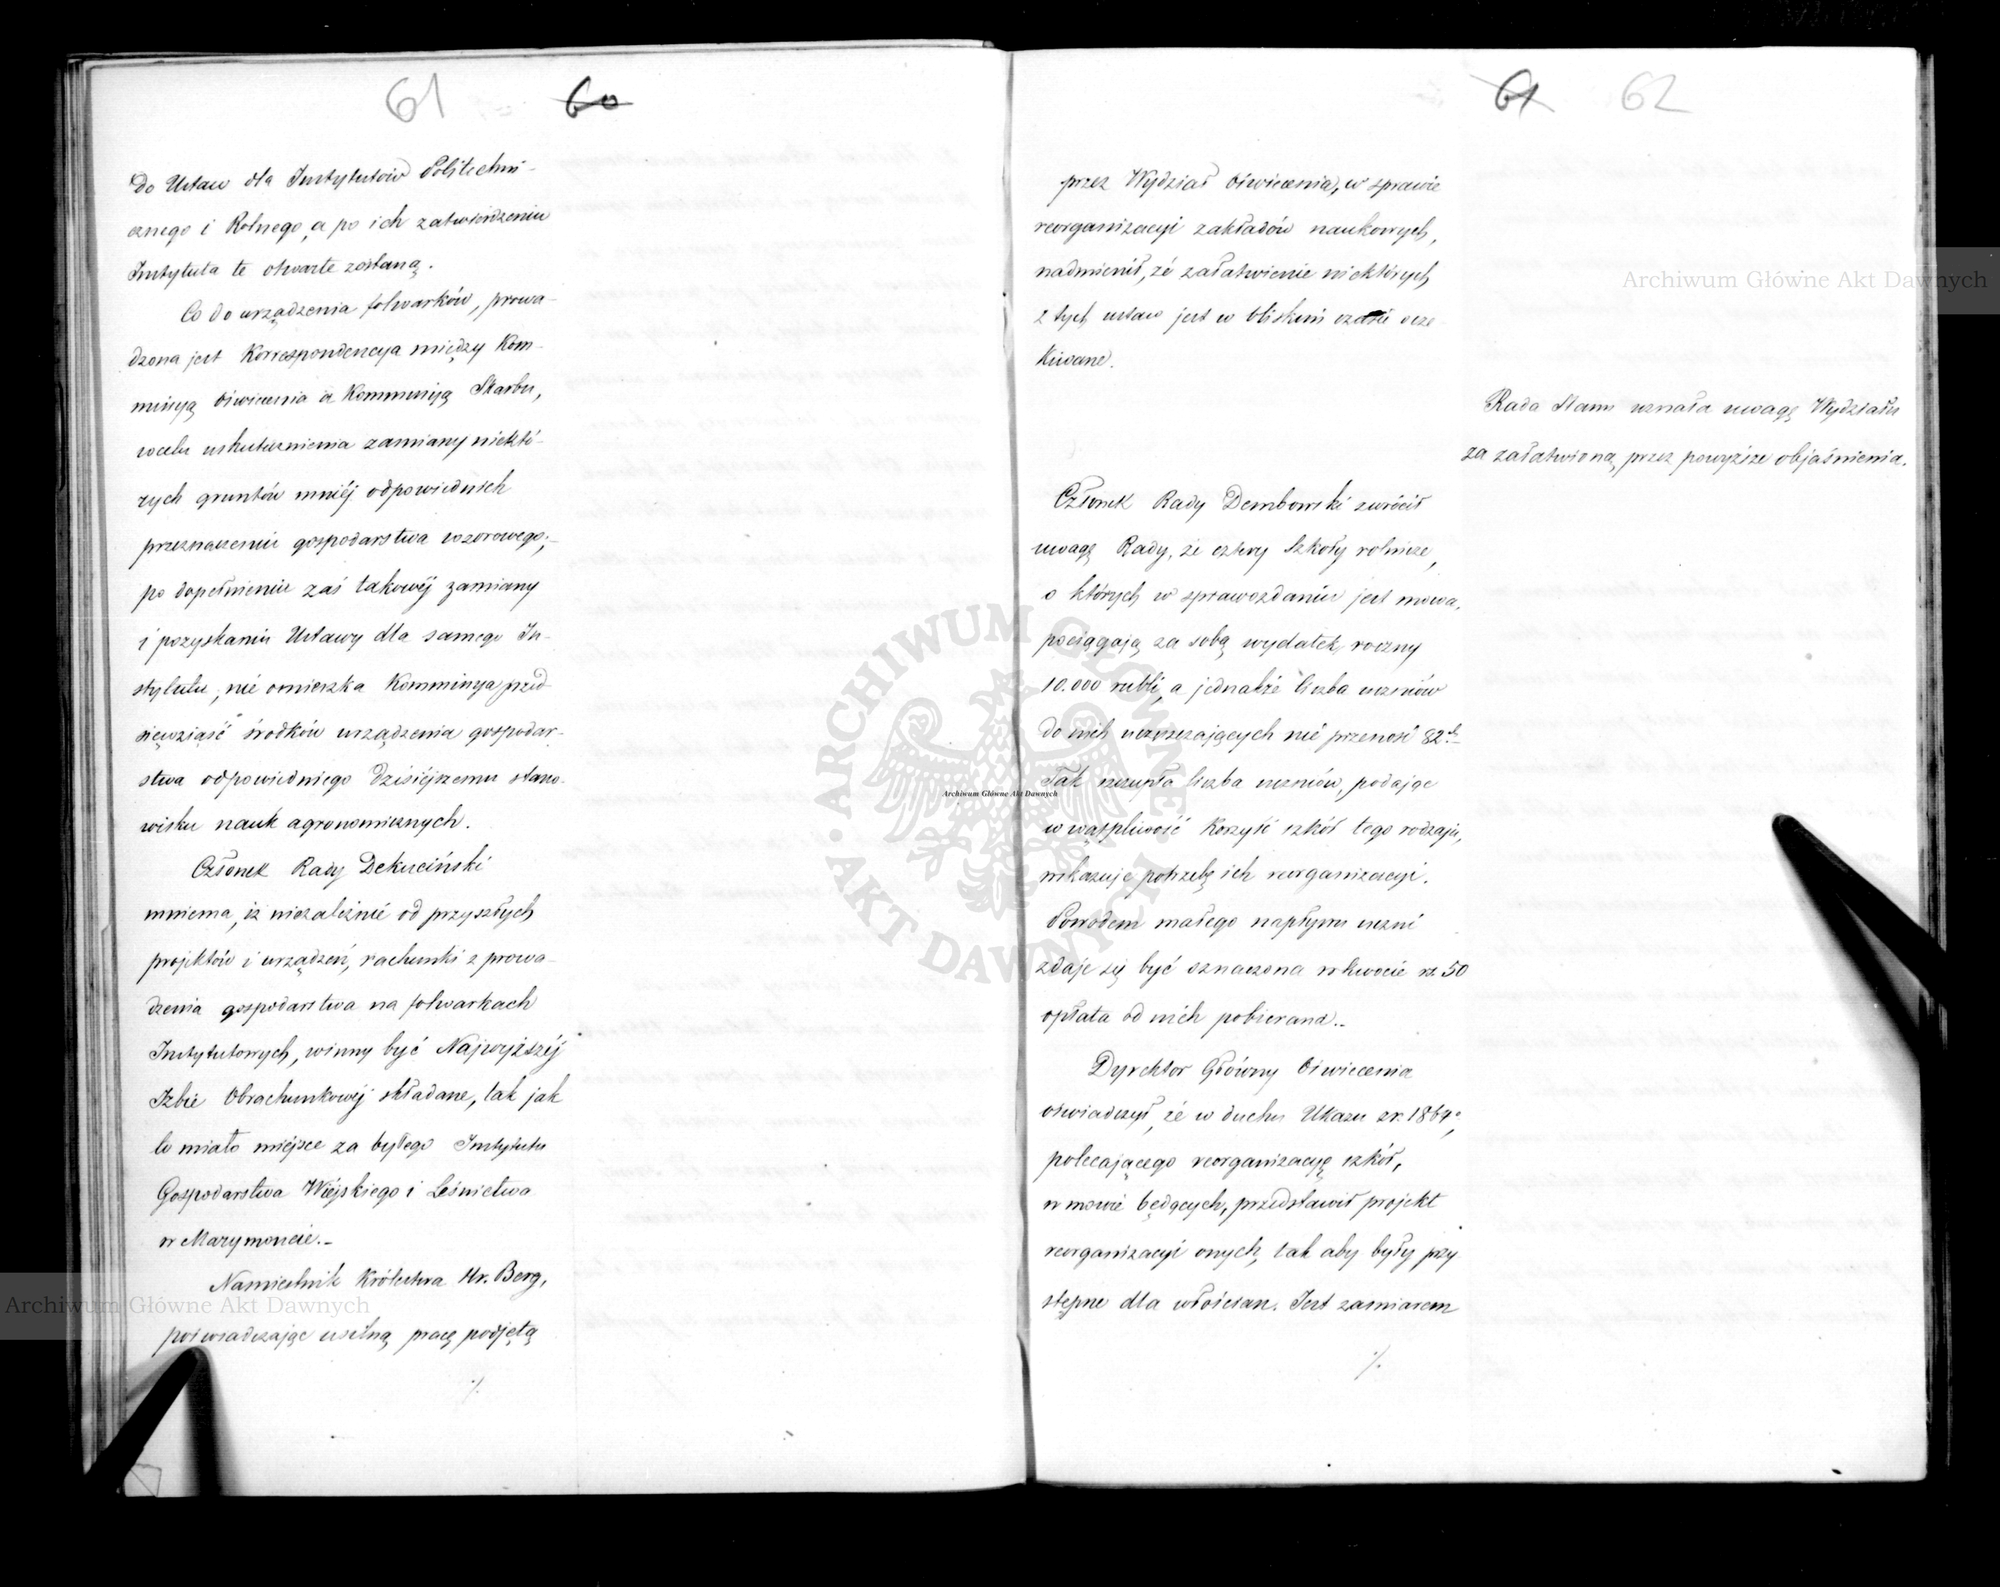 61 60
do Ustaw dla Instytutów Politechni-
cznego i Rolnego, a po ich zatwierdzeniu
Instytuta te otwarte zostaną.
Co do urządzenia folwarków, prowa-
dzona jest Korrespondencya między Kom-
missyą Oświecenia a Kommissyą Skarbu,
w celu uskutecznienia zamiany niektó-
rych gruntów mniéj odpowiednich
przeznaczeniu gospodarstwa wzorowego;-
po dopełnieniu zaś takowéj zamiany
i pozyskaniu Ustawy dla samego In-
stytutu, nie omieszka Kommissya przed-
sięwziąść środków urządzenia gospodar-
stwa odpowiedniego dzisiéjszemu stano-
wisku nauk agronomicznych.
Członek Rady Dekuciński
mniema, iż niezależnie od przyszłych
projektów i urządzeń, rachunki z prowa-
dzenia gospodarstwa na folwarkach
Instytutowych, winny być Najwyższéj
Izbie Obrachunkowéj składane, tak jak
to miało miéjsce za byłego Instytutu
Gospodarstwa Wiéjskiego i Leśnictwa
w Marymoncie.-
Namiestnik Królestwa Hr. Berg,
poświadczając usilną pracę podjętą
./.
61 62
przez Wydział Oświecenia, w sprawie
reorganizacyi zakładów naukowych,
nadmienił, że załatwienie niektórych
z tych ustaw jest w bliskim czasie ocze-
kiwane.
Rada Stanu uznała uwagę Wydziału
za załatwioną przez powyższe objaśnienia.
Członek Rady Dembowski zwrócił
uwagę Rady, że cztery Szkoły rolnicze,
o których w sprawozdaniu jest mowa,
pociągają za sobą wydatek roczny
10.000 rubli, a jednakże liczba uczniów
do nich uczęszczających nie przenosi 82ch
Tak szczupła liczba uczniów, podając
w wątpliwość korzyść szkół tego rodzaju,
wskazuje potrzebę ich reorganizacyi.
Powodem małego napływu uczni
zdaje się być oznaczona w kwocie rs 50
opłata od nich pobierana.-
Dyrektor Główny Oświecenia
oświadczył, że w duchu Ukazu z r. 1864o,
polecającego reorganizacyę szkół,
w mowie będących, przedstawił projekt
reorganizacyi onych, tak aby były przy-
stępne dla włościan. Jest zamiarem
./.
Archiwum Główne Akt Dawnych
ARCHIWUM GŁÓWNE AKT DAWNYCH
Archiwum Główne Akt Dawnych
Archiwum Główne Akt Dawnych